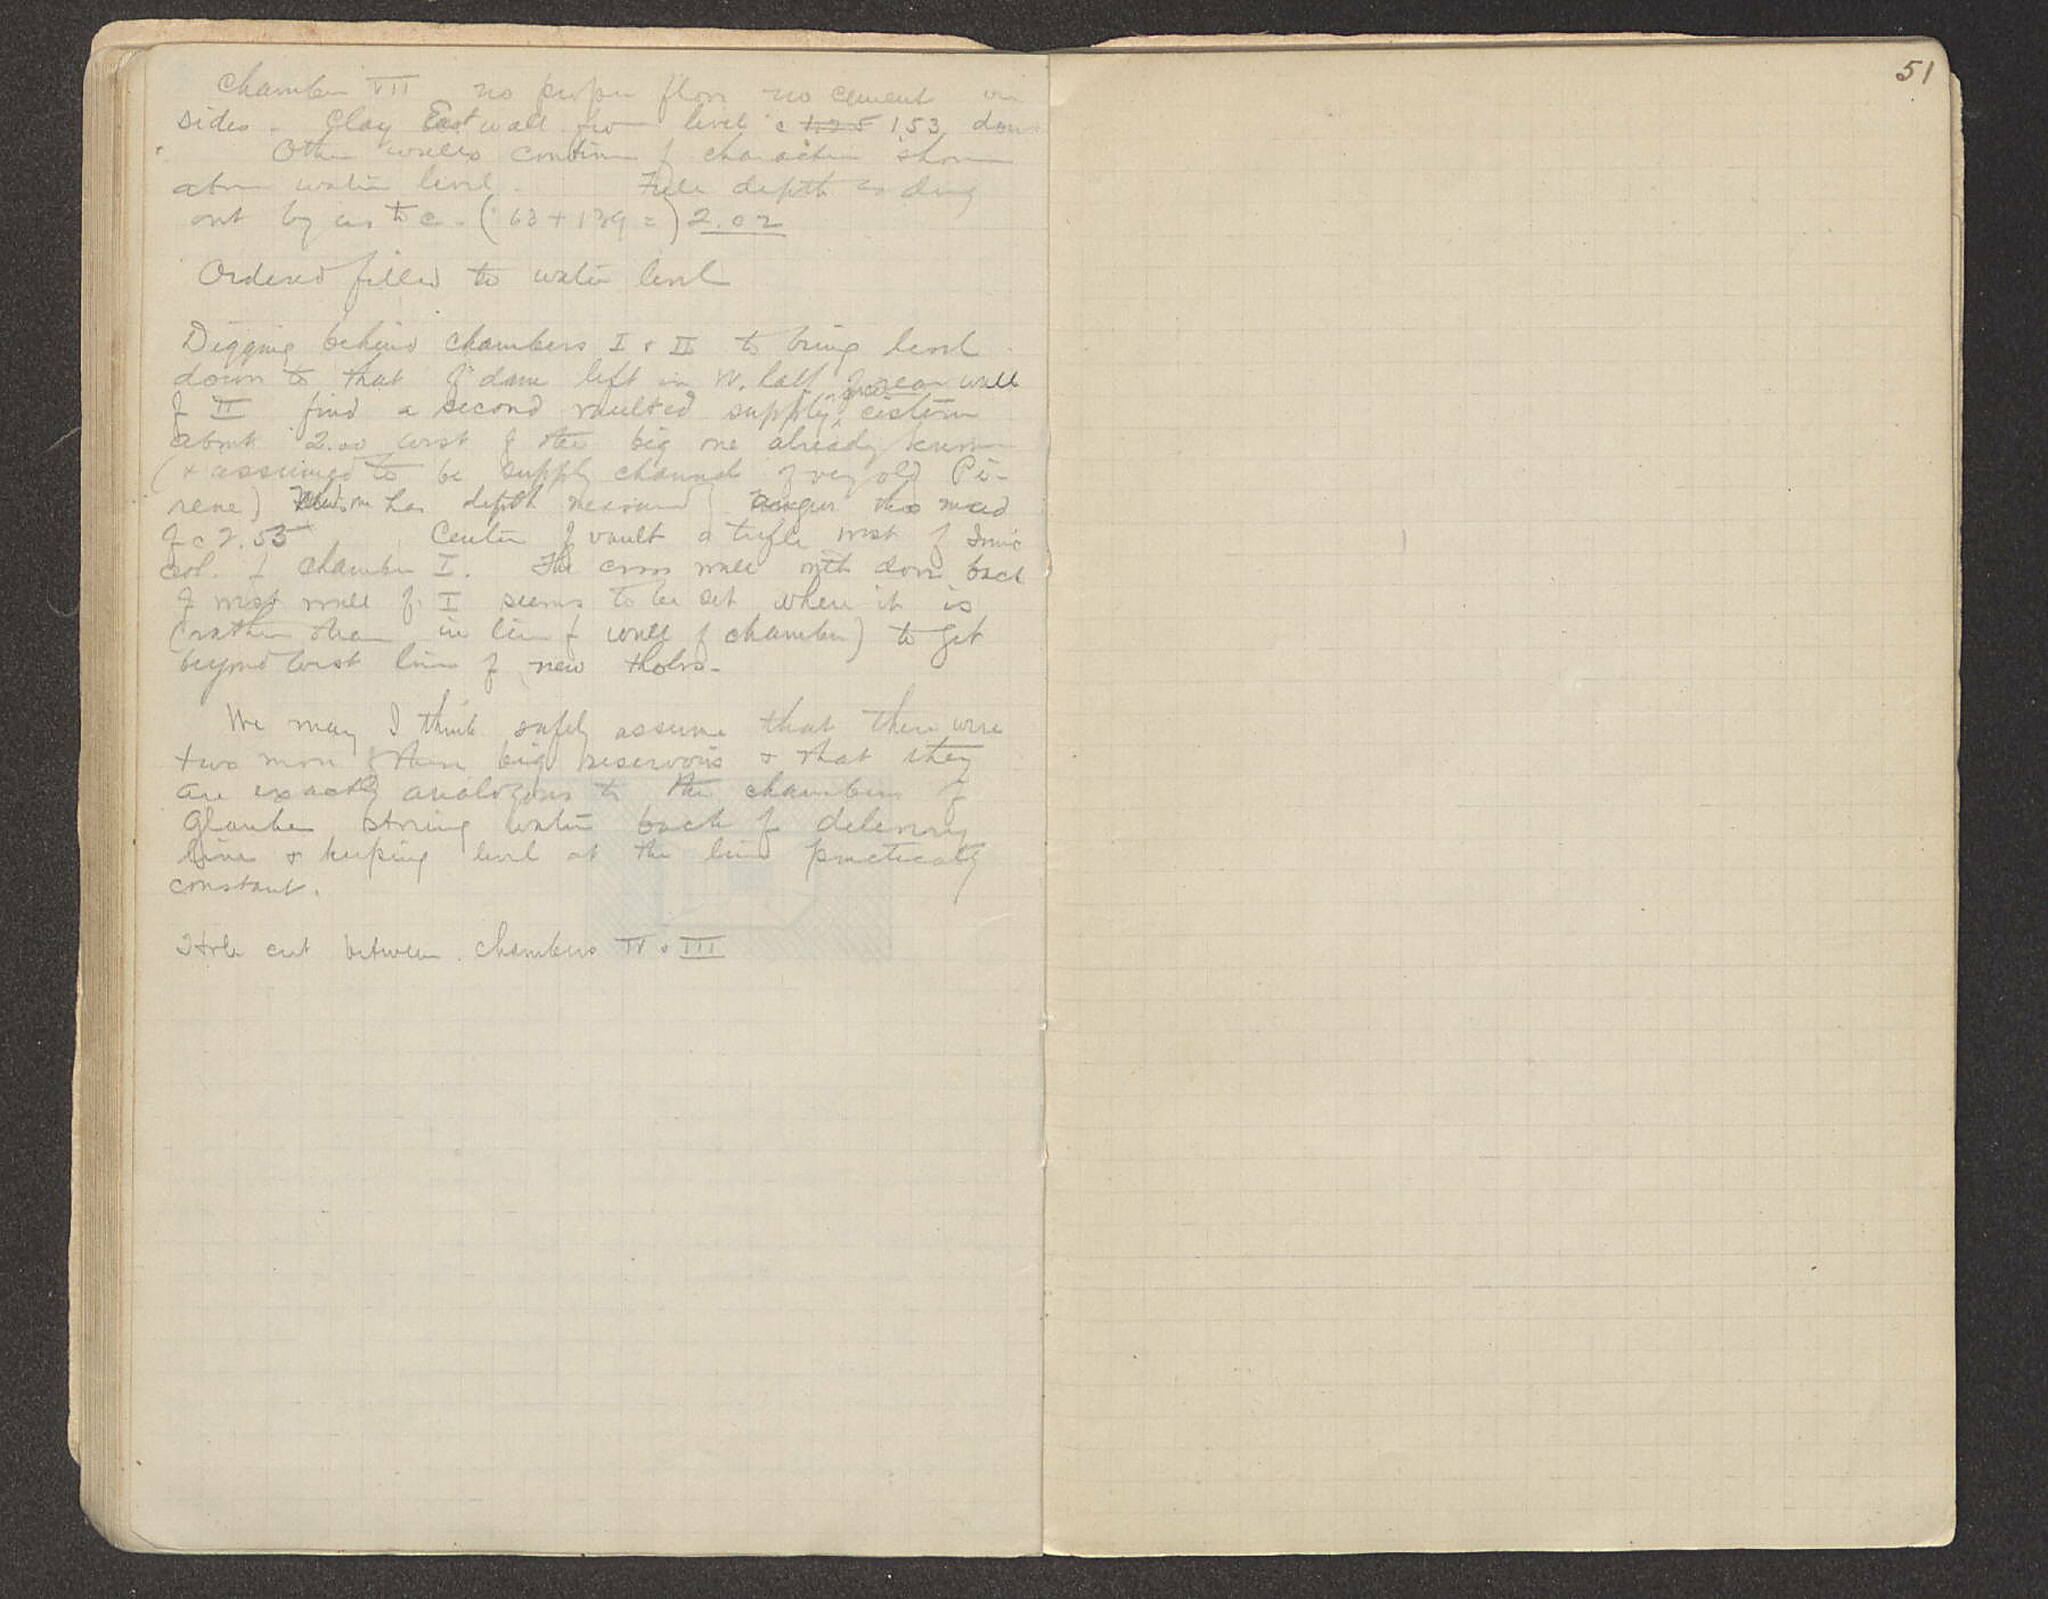 Chamber VII no proper floor no cement on
sides. Clay East wall from level c 1.25 1.53 down
Other walls continue of character shown
above water level. Full depth as dug
out by us to c. (63 + 139 =) 2.02
Ordered filled to water level
Digging behind chambers I & II to bring level
down to that of dam left in W. half of rear wall
of II find a second vaulted supply cistern
about 2.00 west of the big one already known
(& assumed to be supply channel of very old Pi-
rene) has depth measured this mud
of c 2.55 Center of vault a trifle west of Ionic
col. of chamber I. The cross wall with door back
of west wall of I seems to be set where it is
(rather than in line of wall of chamber) to get
beyond west line of new tholos.
We may I think safely assume that there were
two more of these big reservoirs & that they
are exactly analogous to the chambers of
Glauke storing water back of delivery
line & keeping level at the line practically
constant.
Hole cut between chambers IV & III
51